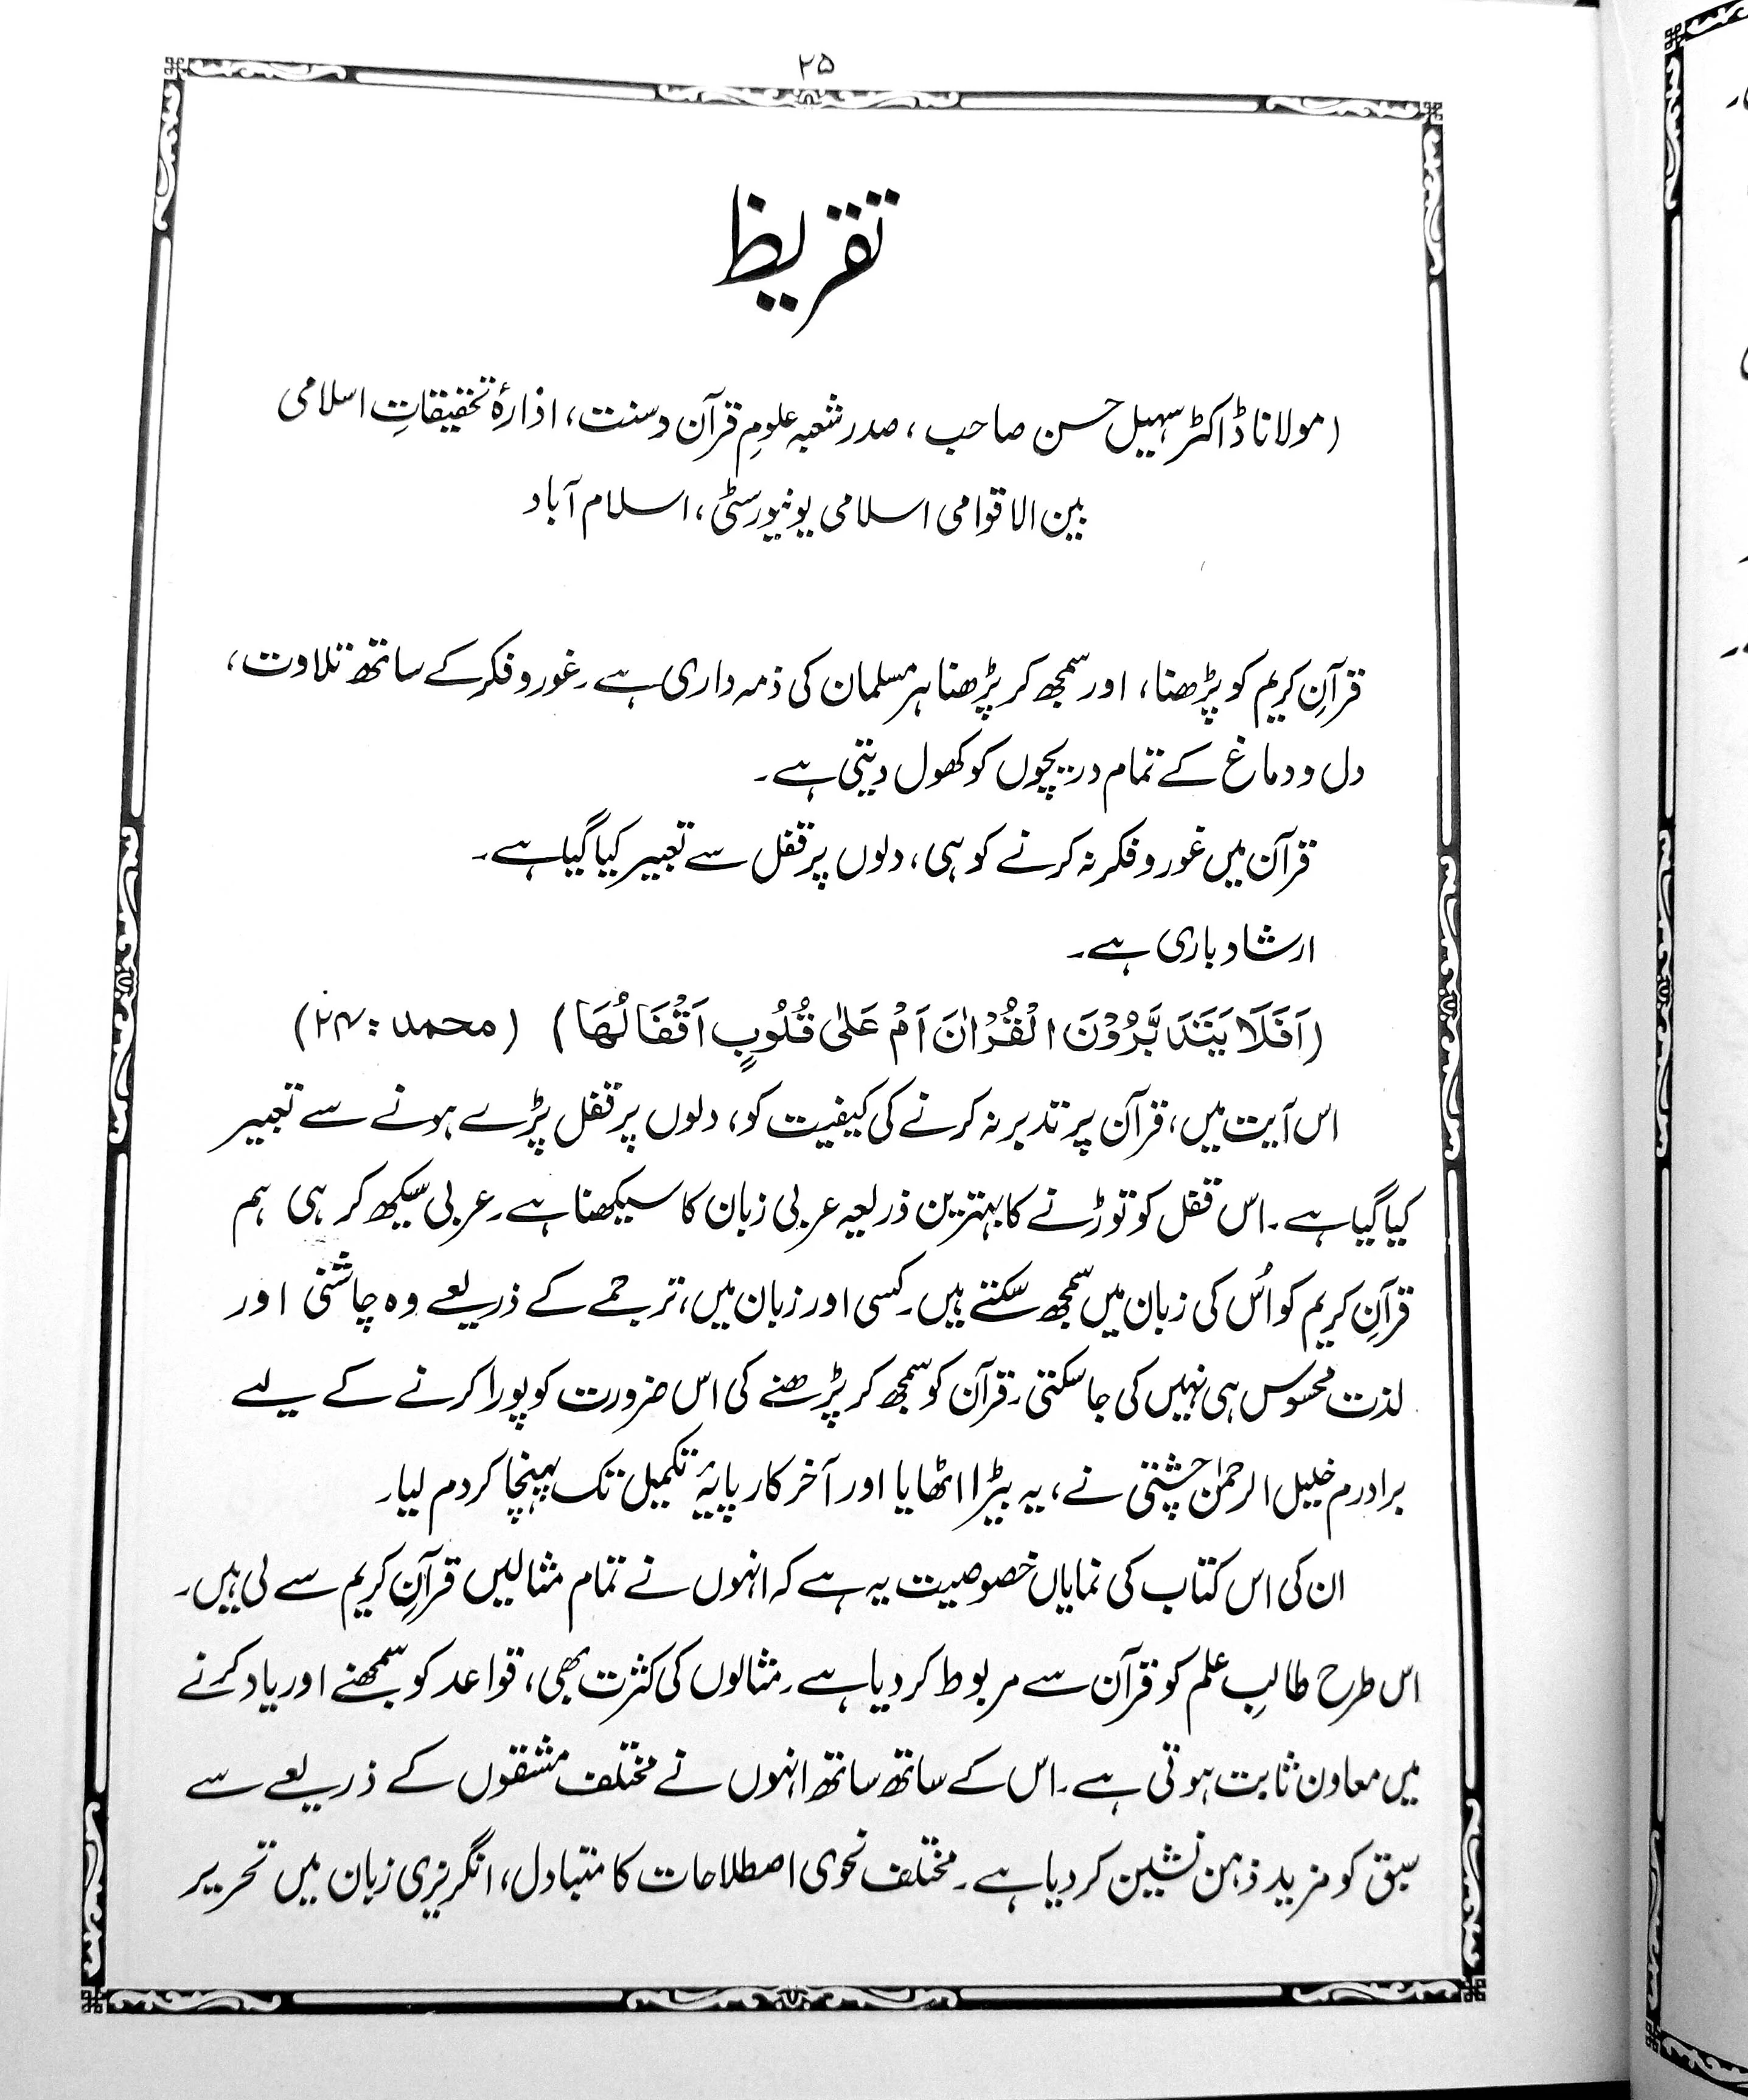 ۲۵
تقریظ
(مولانا ڈاکٹر سہیل حسن صاحب، صدر شعبہ علومِ قرآن وسنت، ادارۂ تحقیقاتِ اسلامی
بین الاقوامی اسلامی یونیورسٹی، اسلام آباد
قرآنِ کریم کو پڑھنا، اور سمجھ کر پڑھنا ہر مسلمان کی ذمہ داری ہے۔ غور و فکر کے ساتھ تلاوت،
دل و دماغ کے تمام دریچوں کو کھول دیتی ہے۔
قرآن میں غور و فکر نہ کرنے کو ہی، دلوں پر قفل سے تعبیر کیا گیا ہے۔
ارشاد باری ہے۔
(اَفَلَا یَتَدَبَّرُوْنَ الْقُرْاٰنَ اَمْ عَلٰی قُلُوبٍ اَقْفَالُهَا) (محمد: ۲۴)
اس آیت میں، قرآن پر تدبر نہ کرنے کی کیفیت کو، دلوں پر قفل پڑے ہونے سے تعبیر
کیا گیا ہے۔ اس قفل کو توڑنے کا بہترین ذریعہ عربی زبان کا سیکھنا ہے۔ عربی سیکھ کر ہی ہم
قرآنِ کریم کو اُس کی زبان میں سمجھ سکتے ہیں۔ کسی اور زبان میں، ترجمے کے ذریعے وہ چاشنی اور
لذت محسوس ہی نہیں کی جا سکتی۔ قرآن کو سمجھ کر پڑھنے کی اس ضرورت کو پورا کرنے کے لیے
برادرم خلیل الرحمٰن چشتی نے، یہ بیڑا اٹھایا اور آخر کار پایۂ تکمیل تک پہنچا کر دم لیا۔
ان کی اس کتاب کی نمایاں خصوصیت یہ ہے کہ انہوں نے تمام مثالیں قرآنِ کریم سے لی ہیں۔
اس طرح طالبِ علم کو قرآن سے مربوط کر دیا ہے۔ مثالوں کی کثرت بھی، قواعد کو سمجھنے اور یاد کرنے
میں معاون ثابت ہوتی ہے۔ اس کے ساتھ ساتھ انہوں نے مختلف مشقوں کے ذریعے سے
سبق کو مزید ذہن نشین کر دیا ہے۔ مختلف نحوی اصطلاحات کا متبادل، انگریزی زبان میں تحریر